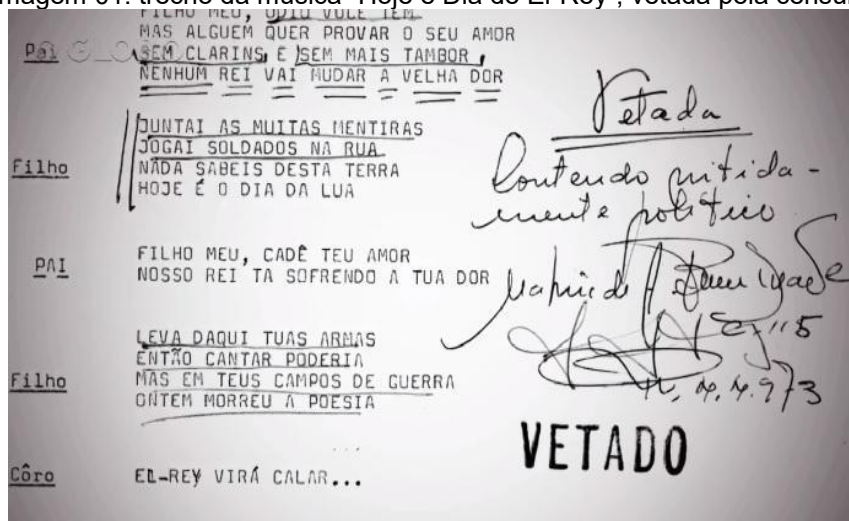 magem 01: trecho da música "Hoje é Dia de El Rey", vetada pela censur
FILHO MEU, ODIO VOCE TEM
MAS ALGUEM QUER PROVAR O SEU AMOR
Pai
SEM CLARINS E SEM MAIS TAMBOR
NENHUM REI VAI MUDAR A VELHA DOR
JUNTAI AS MUITAS MENTIRAS
JOGAI SOLDADOS NA RUA
Filho
NADA SABEIS DESTA TERRA
HOJE É O DIA DA LUA
PAI
FILHO MEU, CADÊ TEU AMOR
NOSSO REI TA SOFRENDO A TUA DOR
LEVA DAQUI TUAS ARMAS
ENTÃO CANTAR PODERIA
Filho
MAS EM TEUS CAMPOS DE GUERRA
ONTEM MORREU A POESIA
Côro
EL-REY VIRÁ CALAR...
Vetada
Conteudo nitida-
mente politico
VETADO